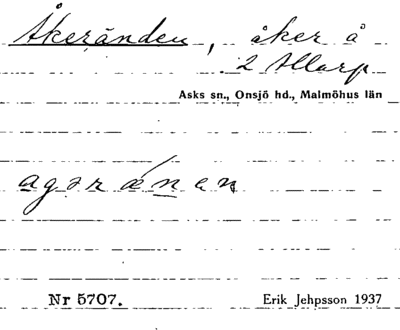 Åkeränden, åker å
2 Allarp
Asks sn., Onsjö hd., Malmöhus län
agərǽnən
Nr 5707. Erik Jehpsson 1937